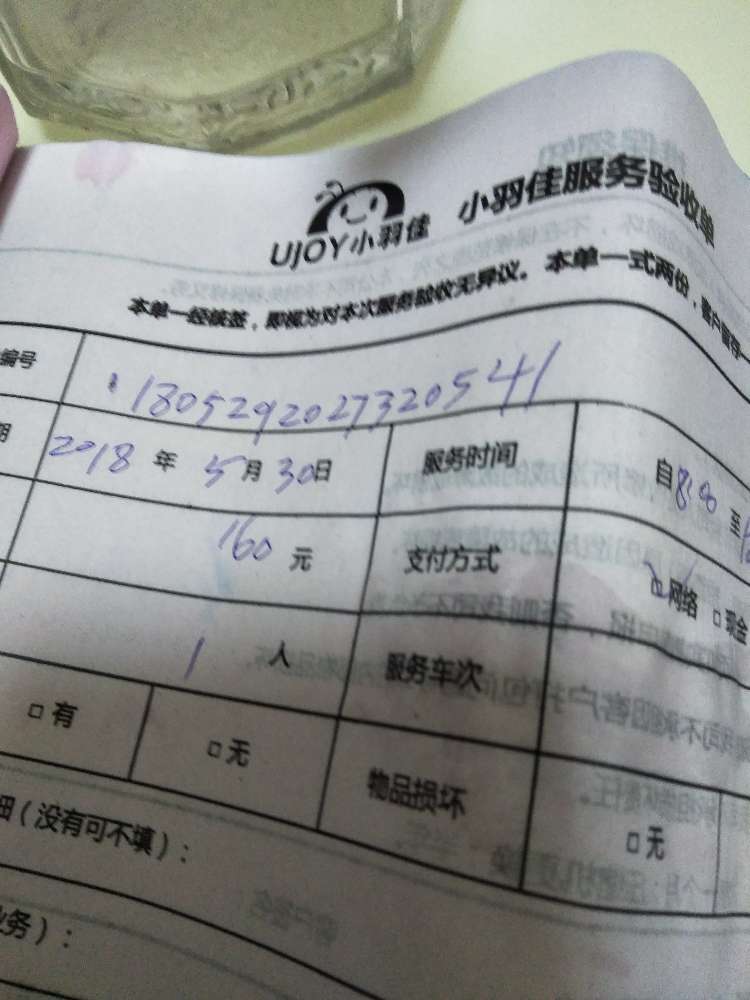 UJOY小羽佳 小羽佳服务验收单
本单一经核签，即视为对本次服务验收无异议。本单一式两份，客户留存一
编号 1805292027320541
期 2018 年 5 月 30 日 服务时间 自 8:00 至
160 元 支付方式 □网络 □现金
1 人 服务车次
□有 □无 物品损坏 □无
细（没有可不填）：
业务）：